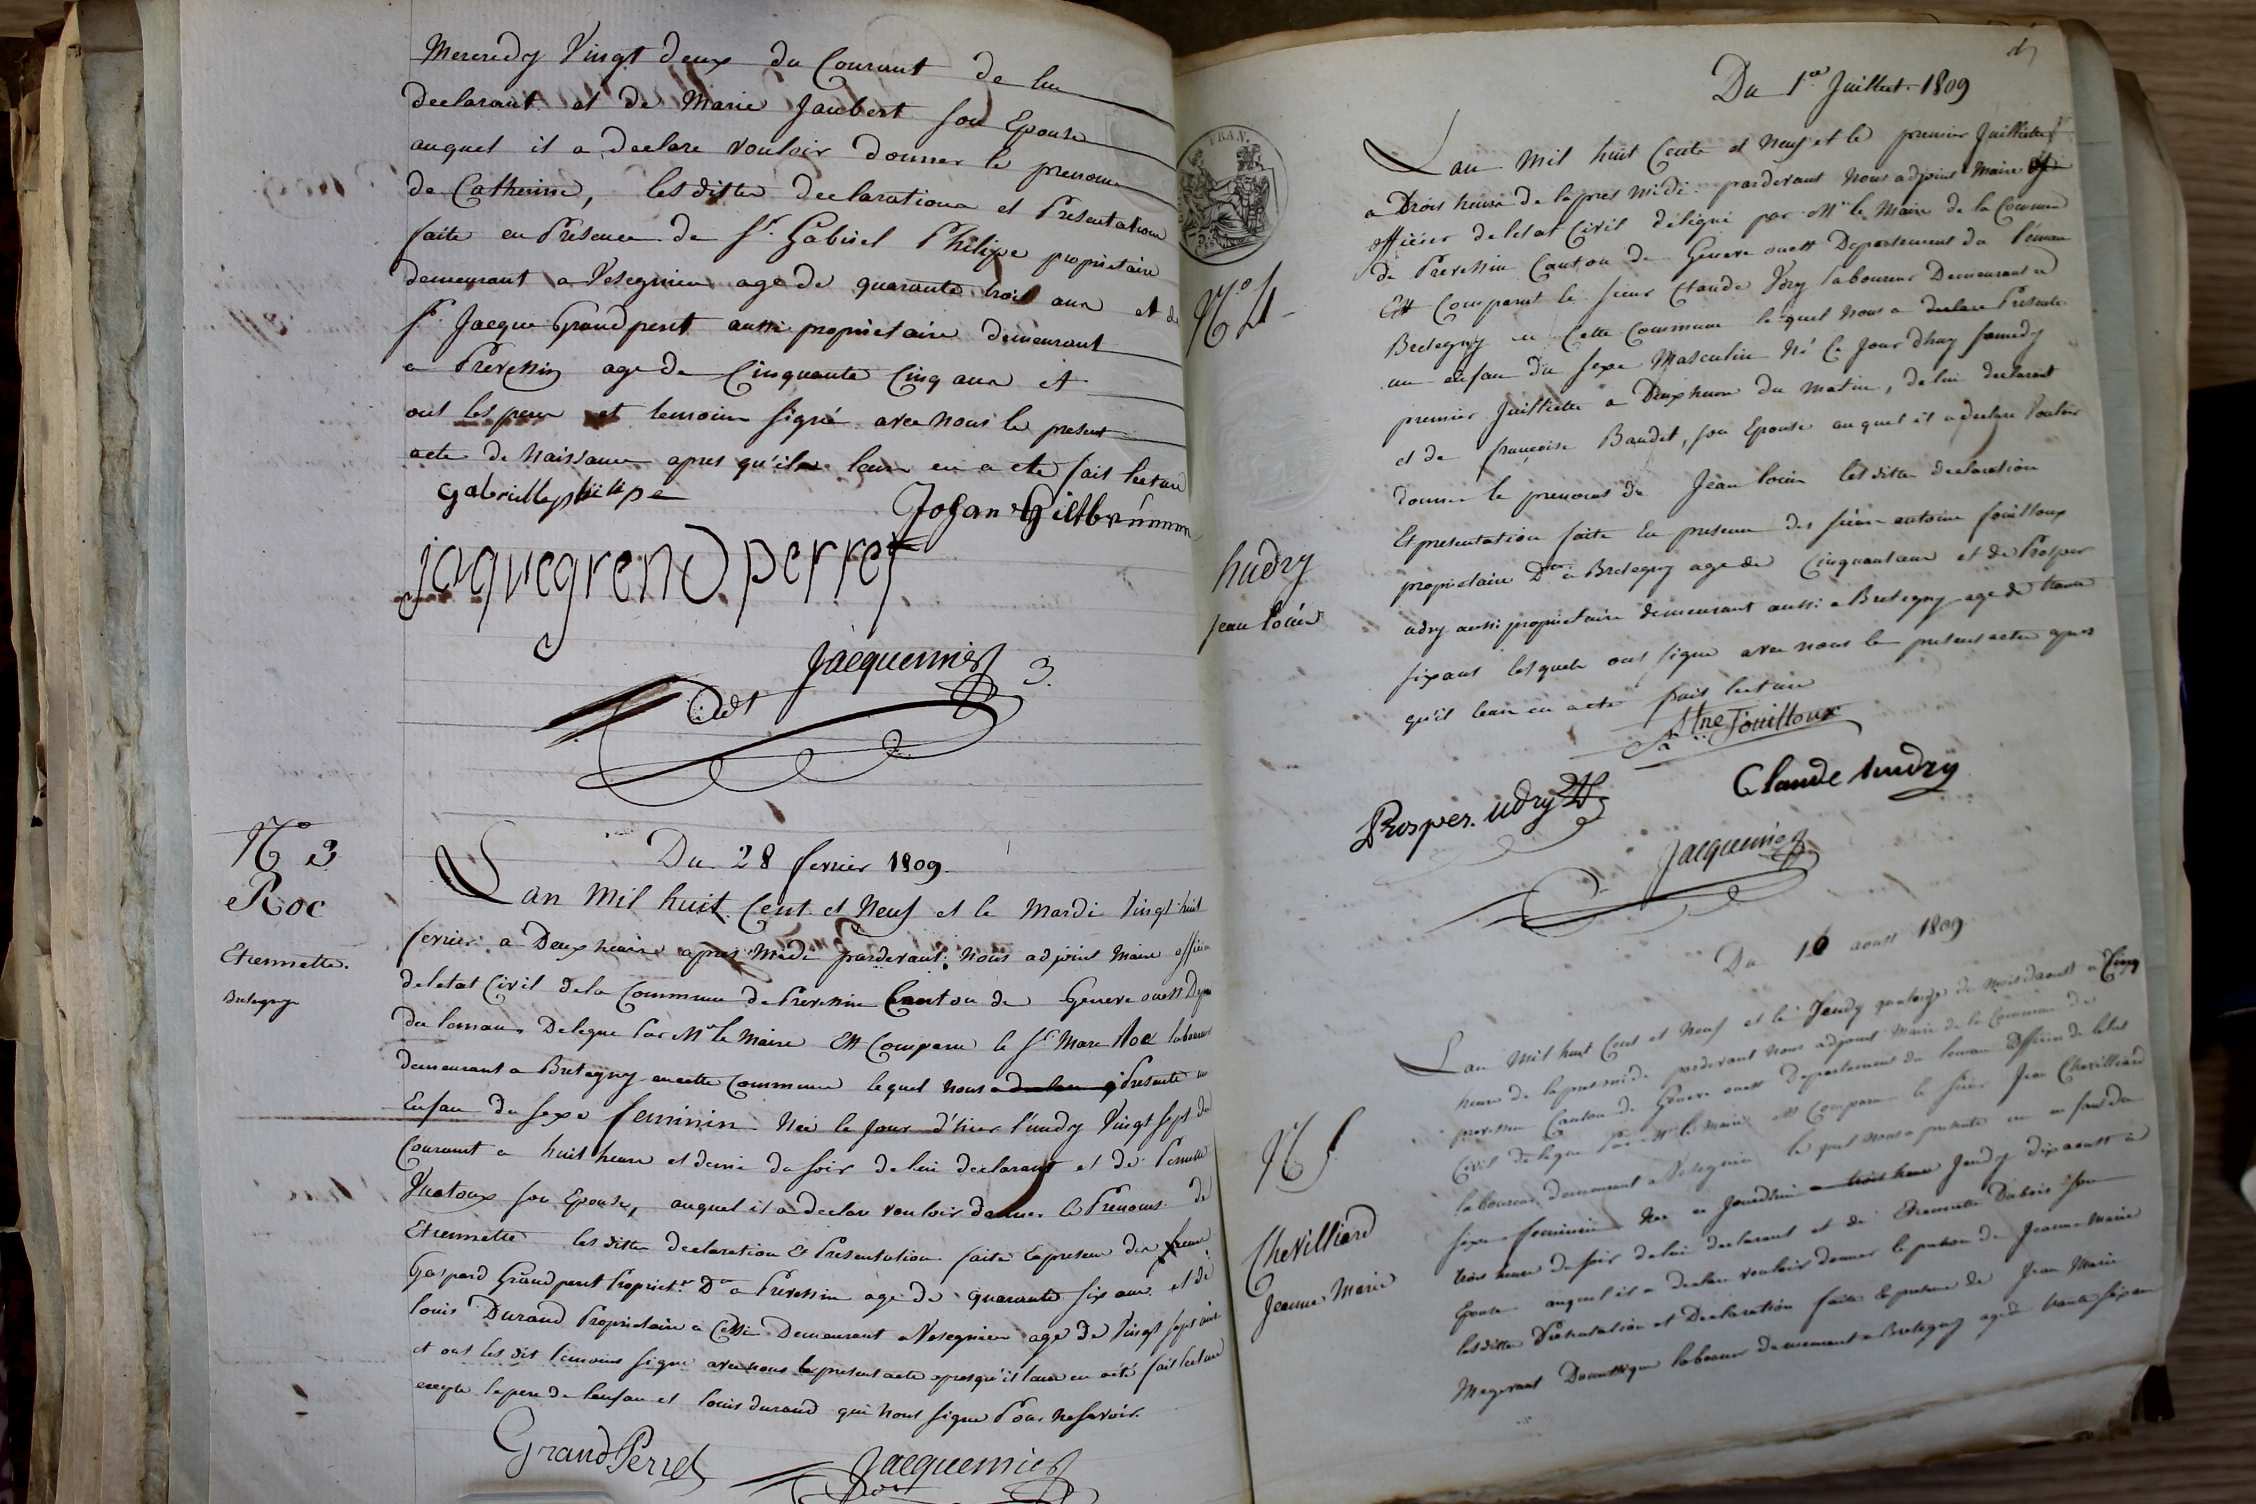 Mercredy Vingt deux du Courant de lui
declarant et de Marie Jaubert son Epouse
auquel il a declare vouloir donner le prenom
de Catherine, lesditte declarations et Presentation
faite en Presence de Sr. Gabriel Philipe propriétaire
demeurant a Vesegnien age de quarante trois ans et de
Sr. Jacque Grandperret aussi propriétaire demeurant
a Prevessin age de Cinquante Cinq ans et
ont les pere et temoins signé avec nous le present
acte de Naissance apres qu'il leur en a ete fait lecture
gabriellephilipe
Johan Hiltbrunnon
jaquegrendperret
Jacquemier
adt
3.
N° 3
Roc
Etiennette.
Bretegny
Du 28 fevrier 1809.
Lan Mil huit Cent et Neuf et le Mardi Vingt huit
fevrier a Deux heure apres Midi pardevant Nous adjoint Maire officier
deletat Civil dela Commune de Prevessin Canton de Geneve ouest Depa
du leman Delegue Par Mr le Maire Est Comparu le Sr Marc Roc laboureur
demeurant a Bretegny encette Commune lequel nous a Presenté un
Enfan du Sexe feminin Née le Jour d'hier lundy Vingt sept du
Courant a huit heure et demi du soir de lui declarant et de Pernette
son Epouse, auquel il a declare vouloir donner le Prenoms de
Etiennette lesditte declaration Et Presentation faite Enpresence des Sieur
Gaspard Grandperret Propriet.r Dt a Prevessin age de quarante six ans et de
louis Durand Propriétaire a Cessi Demeurant a Vesegnien age de Vingt sept ans
et ont les dit temoins signe avec nous le present acte apres qu'il leur en a été fait lecture
excepte le pere de lenfan et louis durand qui nont signe Pour ne savoir.
GrandPerret
Jacquemier
adt
Du 1er Juillet 1809
FRAN.
N° 4
Lan Mil huit Cente et Neuf et le premier Juilliette
a Trois heure de lapres midi pardevant Nous adjoint Maire
officier deletat Civil délégué par Mr le Maire de la Commune
de Prevessin Canton de Geneve ouest Departement du Léman
Est Comparut le sieur Claude Udry laboureur Demeurant a
Bretegny en Cette Commune lequel Nous a declare Presente
un enfan du sexe Masculin Né Ce Jour dhuy samedy
premier Juilliette a Deux heure du matin, de lui declarant
et de françoise Baudet, son Epouse auquel il a declare Vouloir
donner le prenoms de Jean louis lesditte declaration
Et presentation faite En presence des sieur antoine fouilloux
propriétaire Dt a Bretegny age de Cinquante ans et de Prosper
udry aussi propriétaire demeurant aussi a Bretegny age de trente
six ans lesquels ont signe avec nous le present acte apres
qu'il leur en a ete fait lecture
hudry
jean louis
Atne Fouilloux
Claude hudry
Prosper. udry
Jacquemier
Du 10 aoust 1809
N 5
Chevilliard
Jeanne Marie
Lan Mil huit Cent et Neuf et le Jeudy du Mois daoust a Cinq
heure de lapresmidi pardevant Nous adjoint Maire de la Commune de
prevessin Canton de Geneve ouest Departement du leman officier de letat
Civil delegue Par Mr le Maire est Comparu le sieur Jean Chevilliard
laboureur demeurant a Vesegnien le quel nous a presente un enfan du
sexe feminin Née ce Jourdhui Jeudy dix aoust a
trois heure du soir de lui declarant et de Etiennette Dubois son
Epouse auquel il a declare vouloir donner le prenom de Jeanne Marie
lesditte Presentation et Declaration faite En presence de Jean Marie
Megevant Domestique laboureur demeurant a Bretegny age de trente six ans